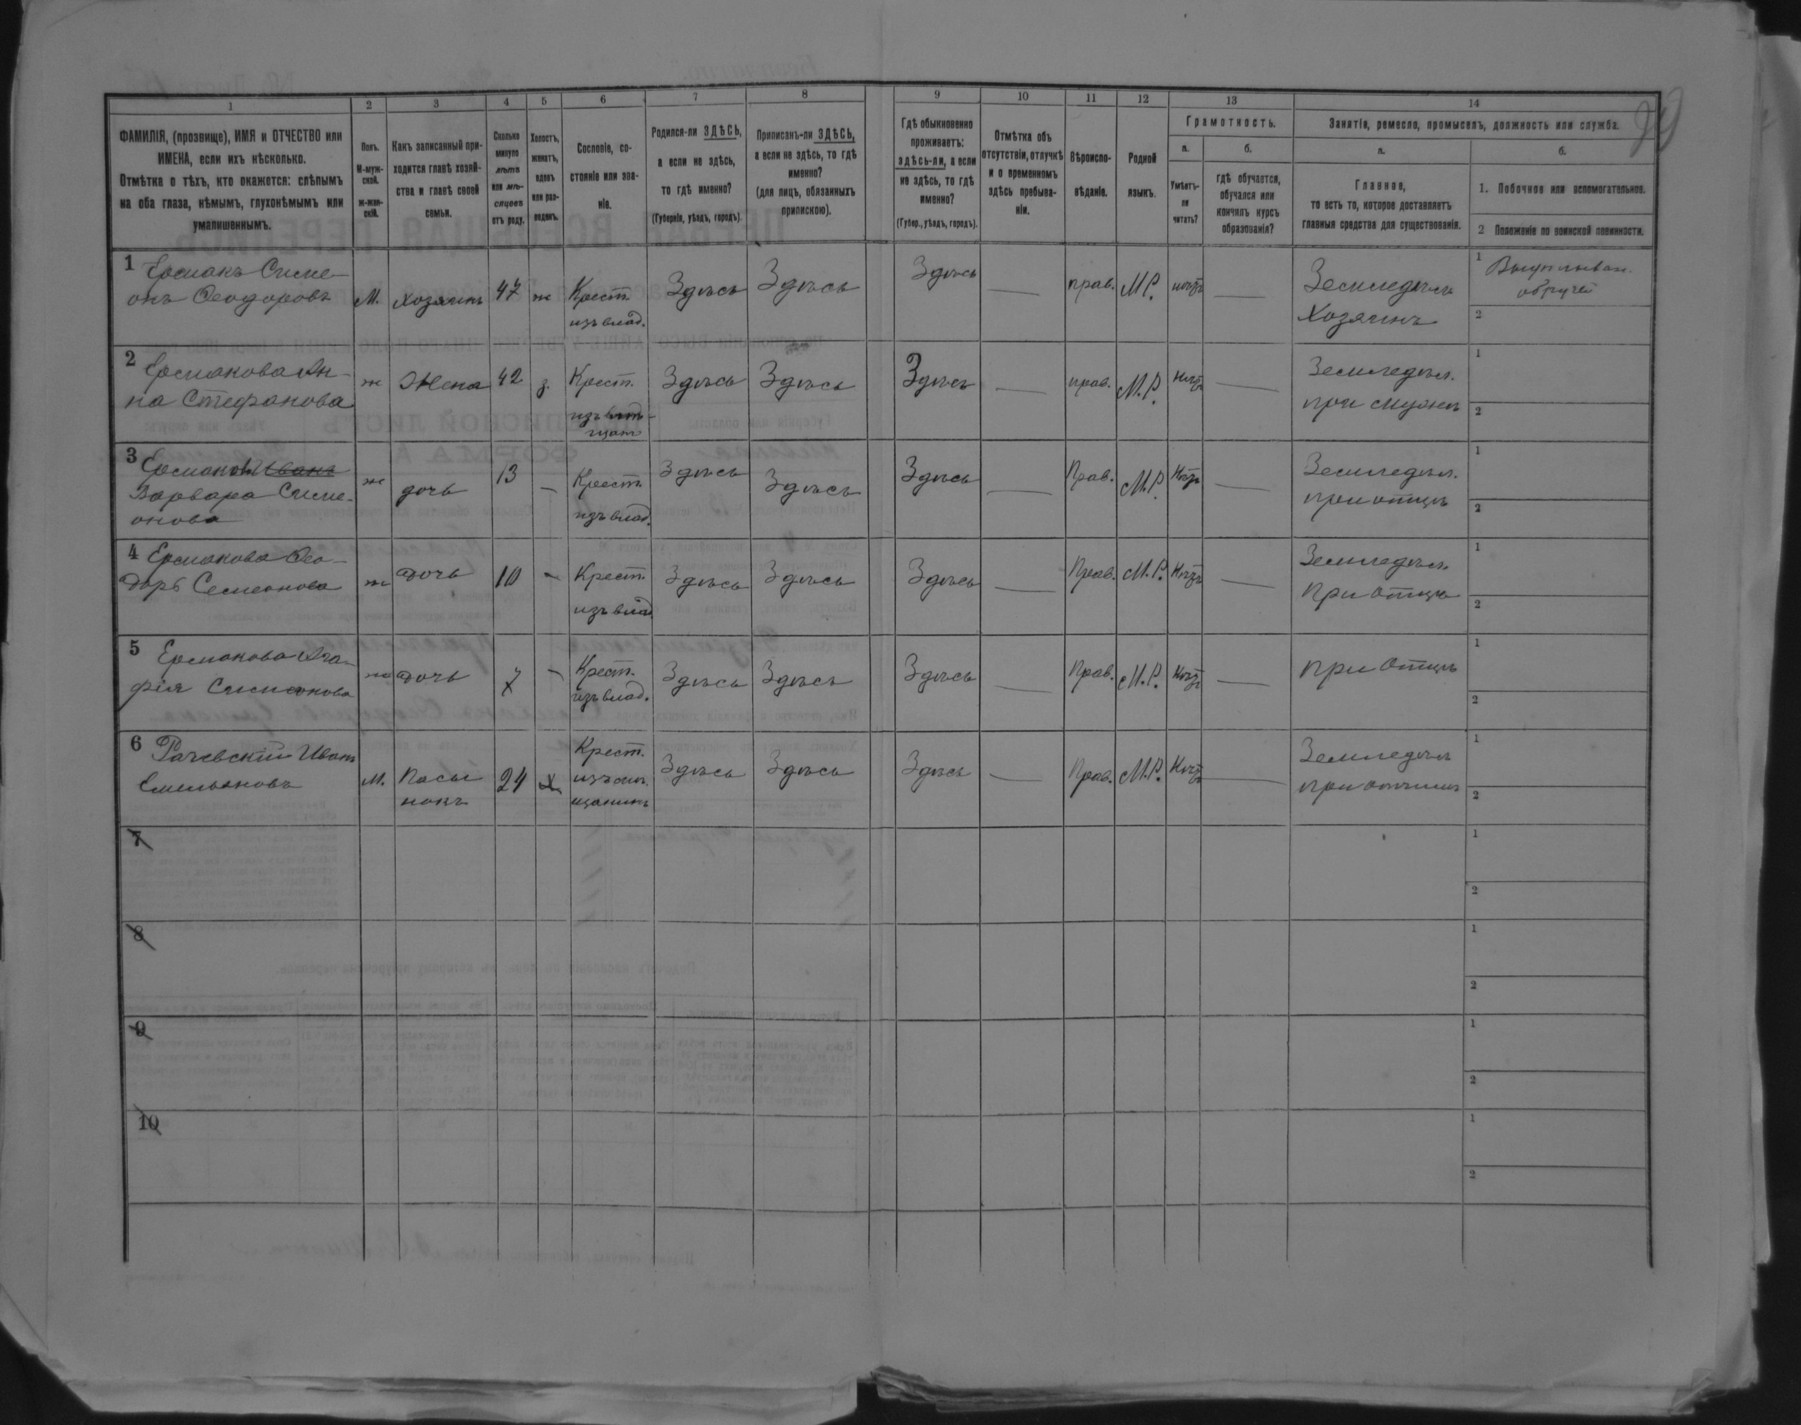 1 2 3 4 5 6 7 8 9 10 11 12 13 14
ФАМИЛІЯ, (прозвище), ИМЯ и ОТЧЕСТВО или
ИМЕНА, если ихъ нѣсколько.
Отмѣтка о тѣхъ, кто окажется: слѣпымъ
на оба глаза, нѣмымъ, глухонѣмымъ или
умалишеннымъ.
Полъ.
М-муж-
ской.
ж-жен-
скій.
Какъ записанный при-
ходится главѣ хозяй-
ства и главѣ своей
семьи.
Сколько
минуло
лѣтъ
или мѣ-
сяцевъ
отъ роду.
Холостъ,
женатъ,
вдовъ
или раз-
веденъ.
Сословіе, со-
стояніе или зва-
ніе.
Родился-ли ЗДѢСЬ,
а если не здѣсь,
то гдѣ именно?
(Губернія, уѣздъ, городъ).
Приписанъ-ли ЗДѢСЬ,
а если не здѣсь, то гдѣ
именно?
(для лицъ, обязанныхъ
припискою).
Гдѣ обыкновенно
проживаетъ:
здѣсь-ли, а если
не здѣсь, то гдѣ
именно?
(Губер., уѣздъ, городъ).
Отмѣтка объ
отсутствіи, отлучкѣ
и о временномъ
здѣсь пребыва-
ніи.
Вѣроиспо-
вѣданіе.
Родной
языкъ.
Грамотность.
а.
Умѣетъ-
ли
читать?
б.
гдѣ обучается,
обучался или
кончилъ курсъ
образованія?
Занятіе, ремесло, промыселъ, должность или служба.
а.
Главное,
то есть то, которое доставляетъ
главныя средства для существованія.
б.
1. Побочное или вспомогательное.
2 Положеніе по воинской повинности.
1 Ермакъ Симе-
онъ Ѳеодоровъ
М.
хозяинъ
47
ж
Крест.
изъ влад.
Здѣсь
Здѣсь
Здѣсь
—
прав.
М.Р.
нѣтъ
—
Земледѣл.
Хозяинъ
1
обручей
2
2 Ермакова Ан-
на Стефанова
ж
Жена
42
з.
Крест.
Здѣсь
Здѣсь
Здѣсь
—
прав.
М.Р.
нѣтъ
—
Земледѣл.
при мужѣ
1
2
3 Ермакова Иванъ
Варвара Симе-
онова
ж
дочь
13
—
Крест.
изъ влад.
Здѣсь
Здѣсь
Здѣсь
—
Прав.
М.Р.
Нѣтъ
—
Земледѣл.
при отцѣ
1
2
4 Ермакова Ѳео-
доръ Семеонова
ж
дочь
10
—
Крест.
изъ влад.
Здѣсь
Здѣсь
Здѣсь
—
Прав.
М.Р.
Нѣтъ
—
Земледѣл.
При отцѣ
1
2
5 Ермакова Ага-
фія Симионова
ж
дочь
7
—
Крест.
изъ влад.
Здѣсь
Здѣсь
Здѣсь
—
Прав.
М.Р.
Нѣтъ
—
при отцѣ
1
2
6 Рачевскій Иванъ
Емельяновъ
М.
Пасы
нокъ
24
х
Крест.
Здѣсь
Здѣсь
Здѣсь
—
Прав.
М.Р.
Нѣтъ
—
Земледѣл
при отчимѣ
1
2
7
1
2
8
1
2
9
1
2
10
1
2